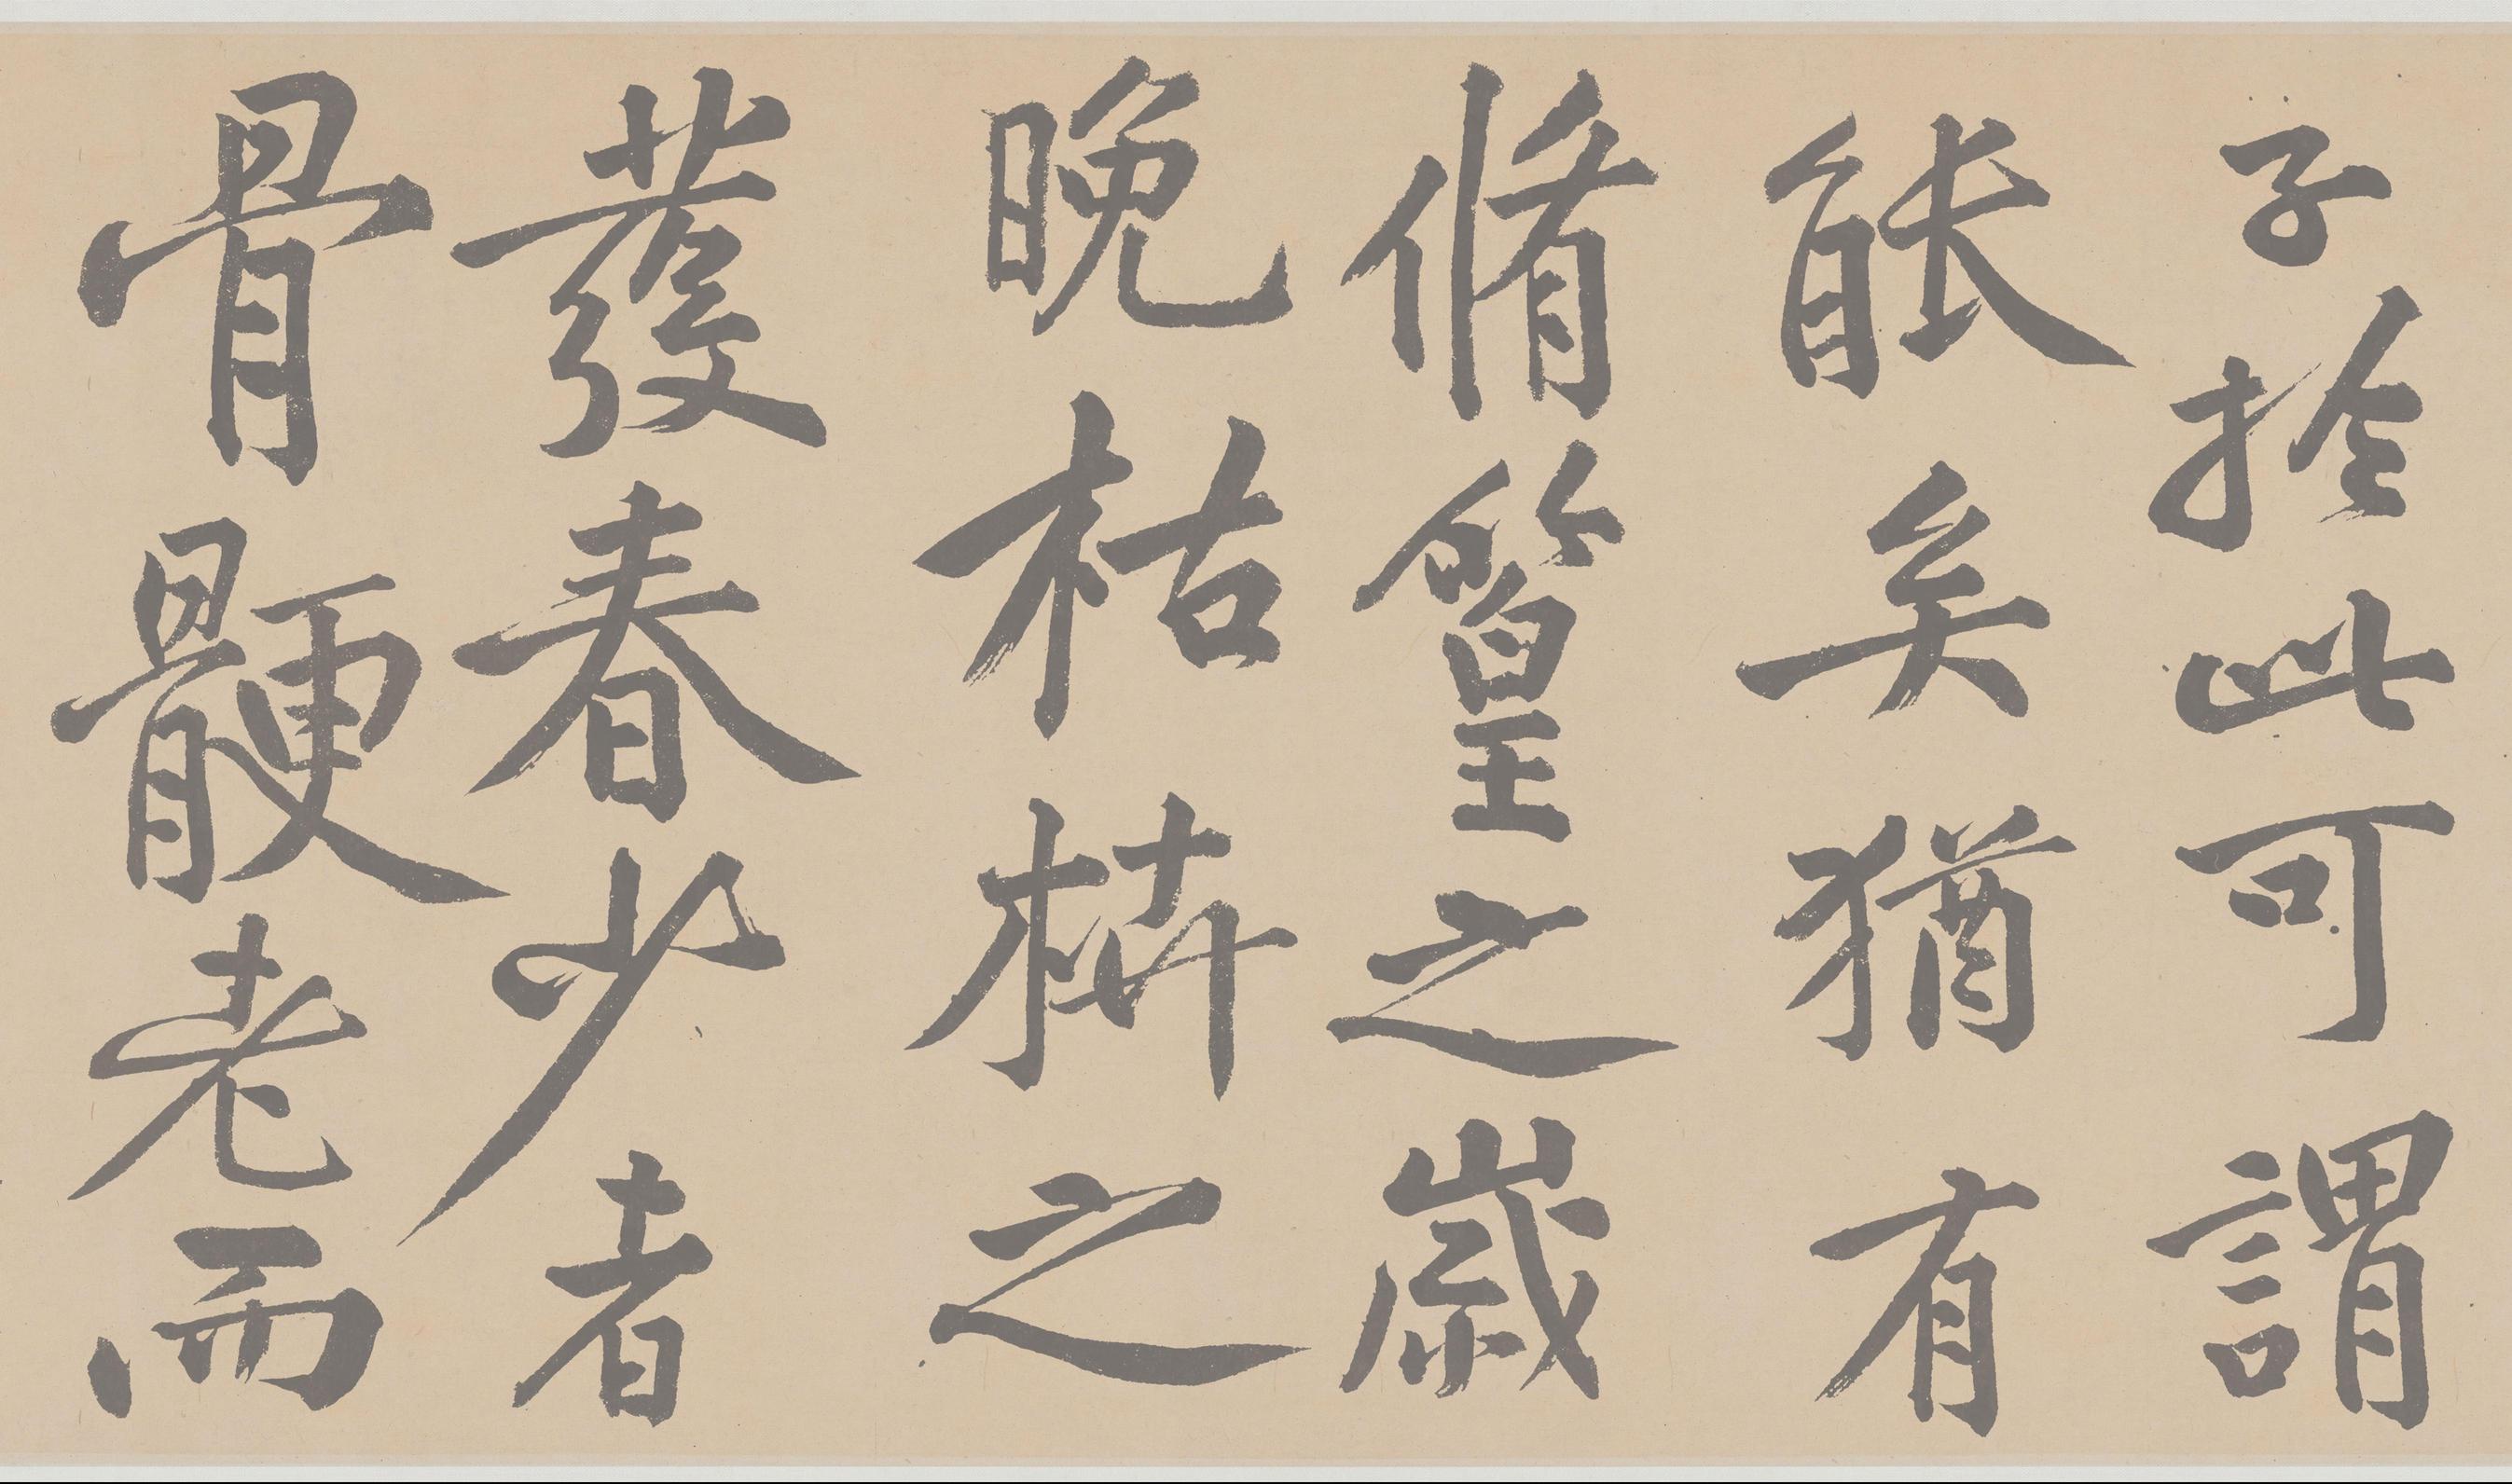 子於此可謂
能矣猶有
脩篁之歲
晚枯枿之
發春少者
骨骾老而